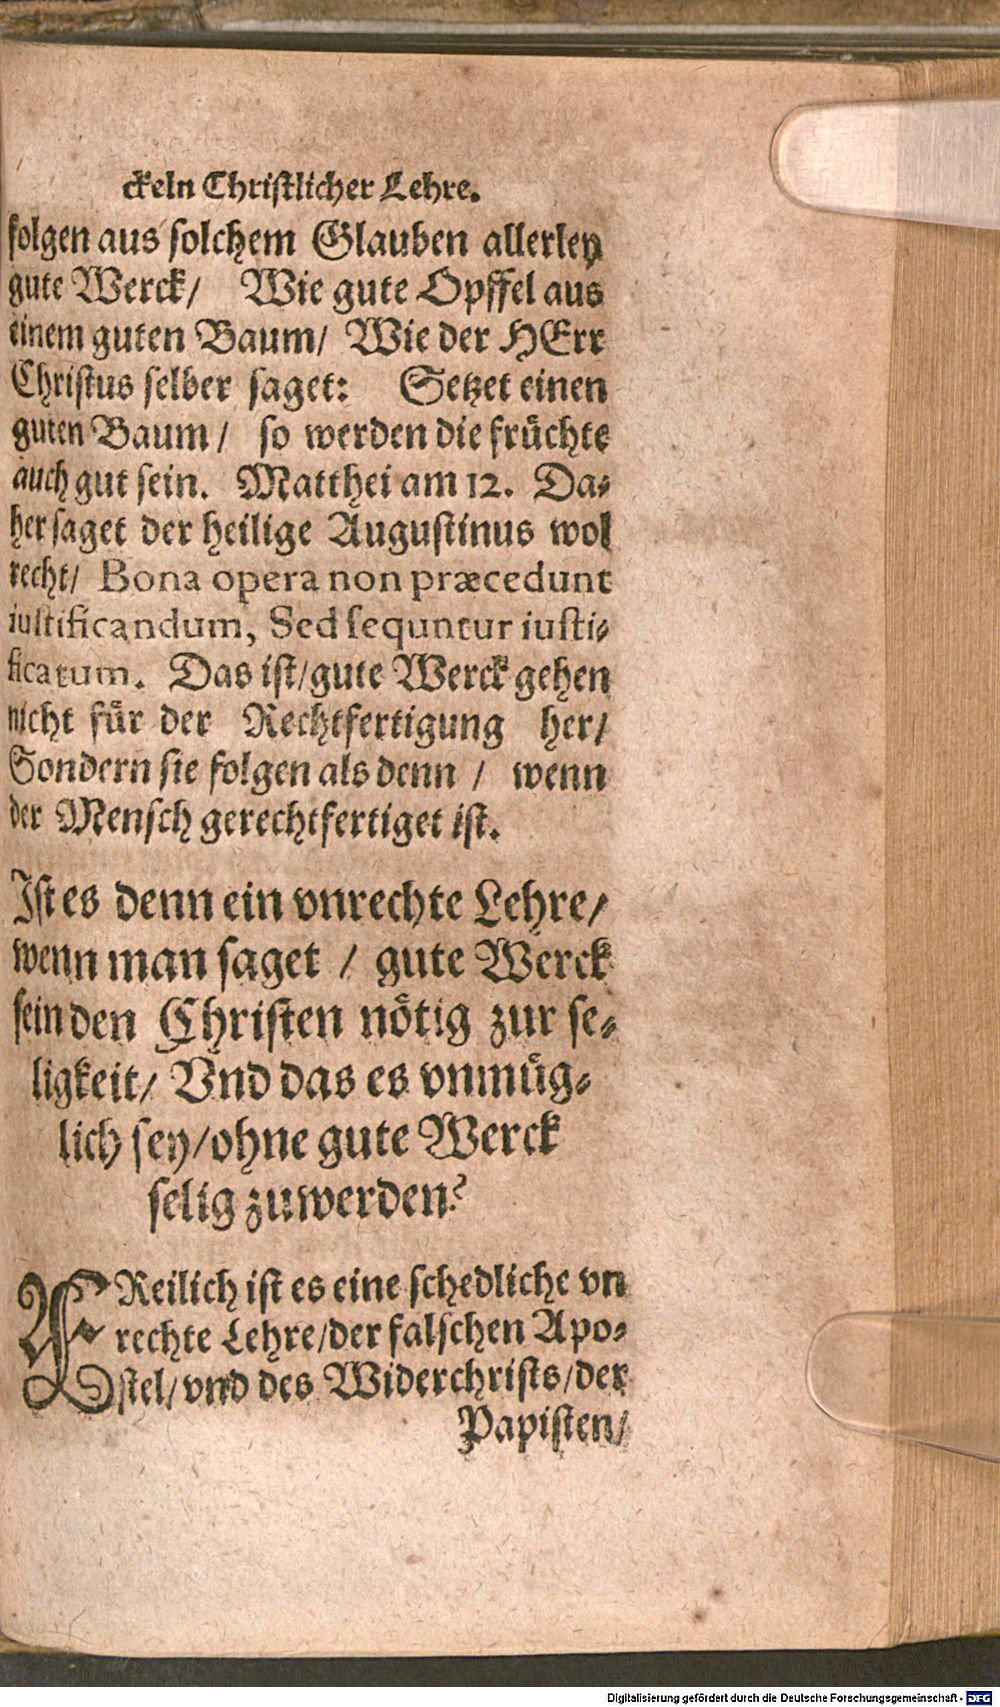 ckeln Christlicher Lehre.
folgen aus solchem Glauben allerley
gute Werck/ Wie gute Öpffel aus
einem guten Baum/ Wie der HErr
Christus selber saget: Setzet einen
guten Baum/ so werden die früchte
auch gut sein. Matthei am 12. Da-
her saget der heilige Augustinus wol
recht/ Bona opera non præcedunt
iustificandum, Sed sequntur iusti-
ficatum. Das ist/gute Werck gehen
nicht für der Rechtfertigung her/
Sondern sie folgen als denn / wenn
der Mensch gerechtfertiget ist.
Ist es denn ein vnrechte Lehre/
wenn man saget / gute Werck
sein den Christen nötig zur se-
ligkeit/ Vnd das es vnmüg-
lich sey/ohne gute Werck
selig zuwerden?
FReilich ist es eine schedliche vn
rechte Lehre/der falschen Apo-
stel/vnd des Widerchrists/der
Papisten/
Digitalisierung gefördert durch die Deutsche Forschungsgemeinschaft - DFG